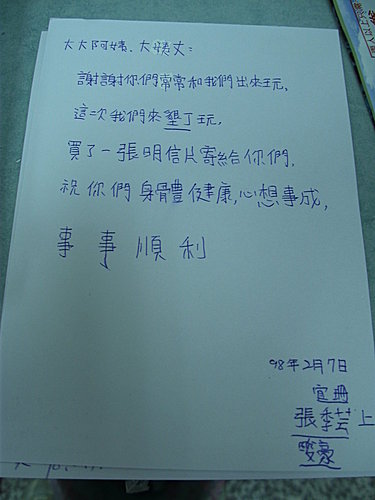 大大阿姨、大姨丈：
謝謝你們常常和我們出來玩,
這次我們來墾丁玩,
買了一張明信片寄給你們,
祝你們身體健康,心想事成,
事事順利
98年2月7日
宜珊
張季芸 上
駿豪